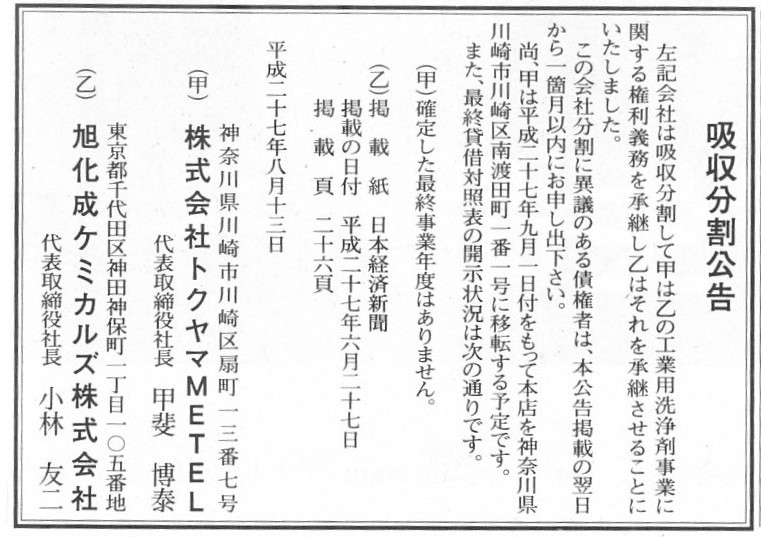 吸収分割公告
左記会社は吸収分割して甲は乙の工業用洗浄剤事業に
関する権利義務を承継し乙はそれを承継させることに
いたしました。
この会社分割に異議のある債権者は、本公告掲載の翌日
から一箇月以内にお申し出下さい。
尚、甲は平成二十七年九月一日付をもって本店を神奈川県
川崎市川崎区南渡田町一番一号に移転する予定です。
また、最終貸借対照表の開示状況は次の通りです。
(甲)確定した最終事業年度はありません。
(乙)掲載紙 日本経済新聞
掲載の日付 平成二十七年六月二十七日
掲載頁 二十六頁
平成二十七年八月十三日
神奈川県川崎市川崎区扇町一三番七号
(甲) 株式会社トクヤマMETEL
代表取締役社長 甲斐 博泰
東京都千代田区神田神保町一丁目一〇五番地
(乙) 旭化成ケミカルズ株式会社
代表取締役社長 小林 友二